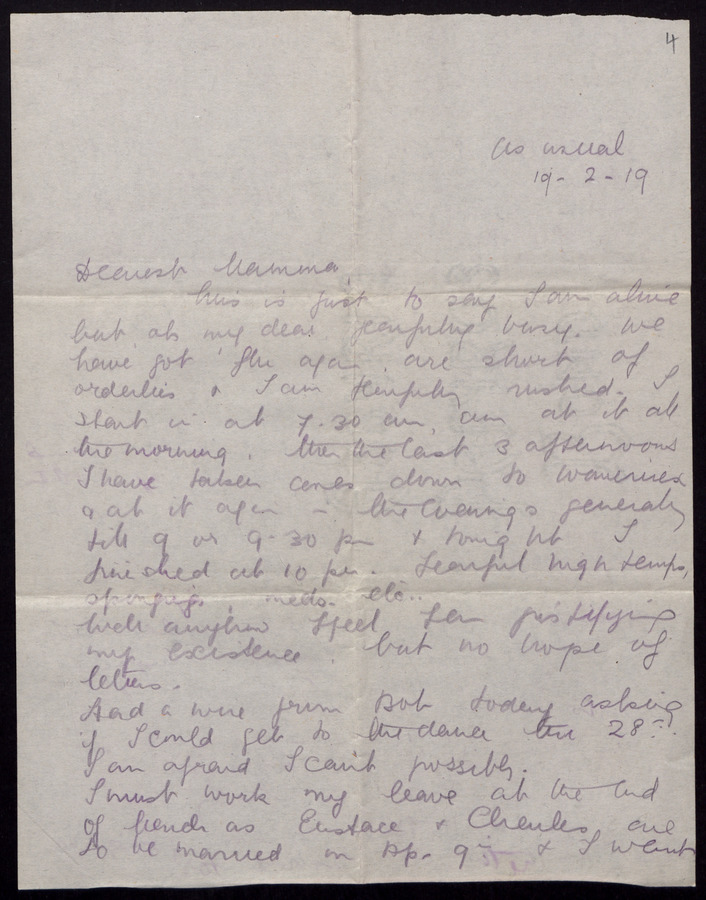 4
as usual
19-2-19
Dearest Mamma,
This is just to say I am alive
but oh my dear fearfully busy. We
have got 'flu again are short of
orderlies & I am fearfully rushed. I
start in at 7.30 am, am at it all
the morning, then the last 3 afternoons
I have taken cases down to
& at it again in the evenings generally
till 9 or 9-30 pm & tonight I
finished at 10 pm. Fearful high temps,
spongings, meds. etc..
Well anyhow I feel I am justifying
my existence, but no hope of
letters.
Had a wire from Bob today asking
if I could get to the dance the 28th.
I am afraid I can't possibly.
I must work my leave at the end
of as Eustace & Charles are
to be married on Ap. 9th & I want